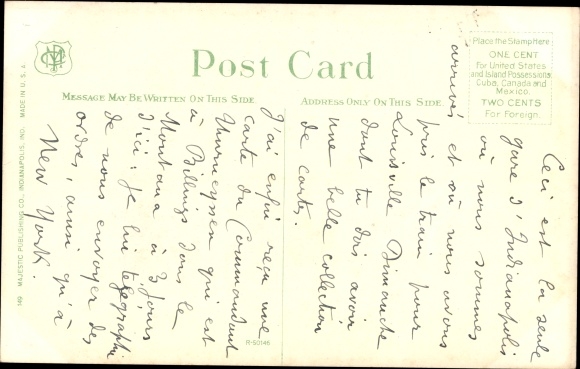 Post Card
MESSAGE MAY BE WRITTEN ON THIS SIDE
ADDRESS ONLY ON THIS SIDE
Place the Stamp Here
ONE CENT
For United States
and Island Possessions
Cuba, Canada and
Mexico.
TWO CENTS
For Foreign.
149 MAJESTIC PUBLISHING CO., INDIANAPOLIS, IND. MADE IN U. S. A.
R-50146
Ceci est la seule
gare d'Indianapolis
où nous sommes
arrivés et où nous avons
pris le train pour
Louisville Dimanche
dont tu dois avoir
une belle collection
de cartes.
J'ai enfin reçu une
carte du Commandant
Thurneyssen qui est
à Billings dans le
Montana à 3 jours
d'ici. Je lui télégraphie
de nous envoyer des
ordres, ainsi qu'à
New York.